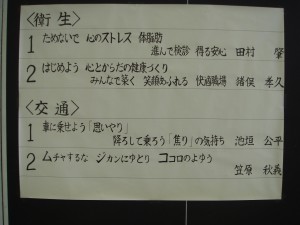 〈衛生〉
1 ためないで 心のストレス 体脂肪
進んで検診 得る安心 田村 肇
2 はじめよう 心とからだの健康づくり
みんなで築く 笑顔あふれる 快適職場 猪俣 孝久
〈交通〉
1 車に乗せよう「思いやり」
降ろして乗ろう「焦り」の気持ち 池垣 公平
2 ムチャするな ジカンにゆとり ココロのよゆう
笠原 秋義